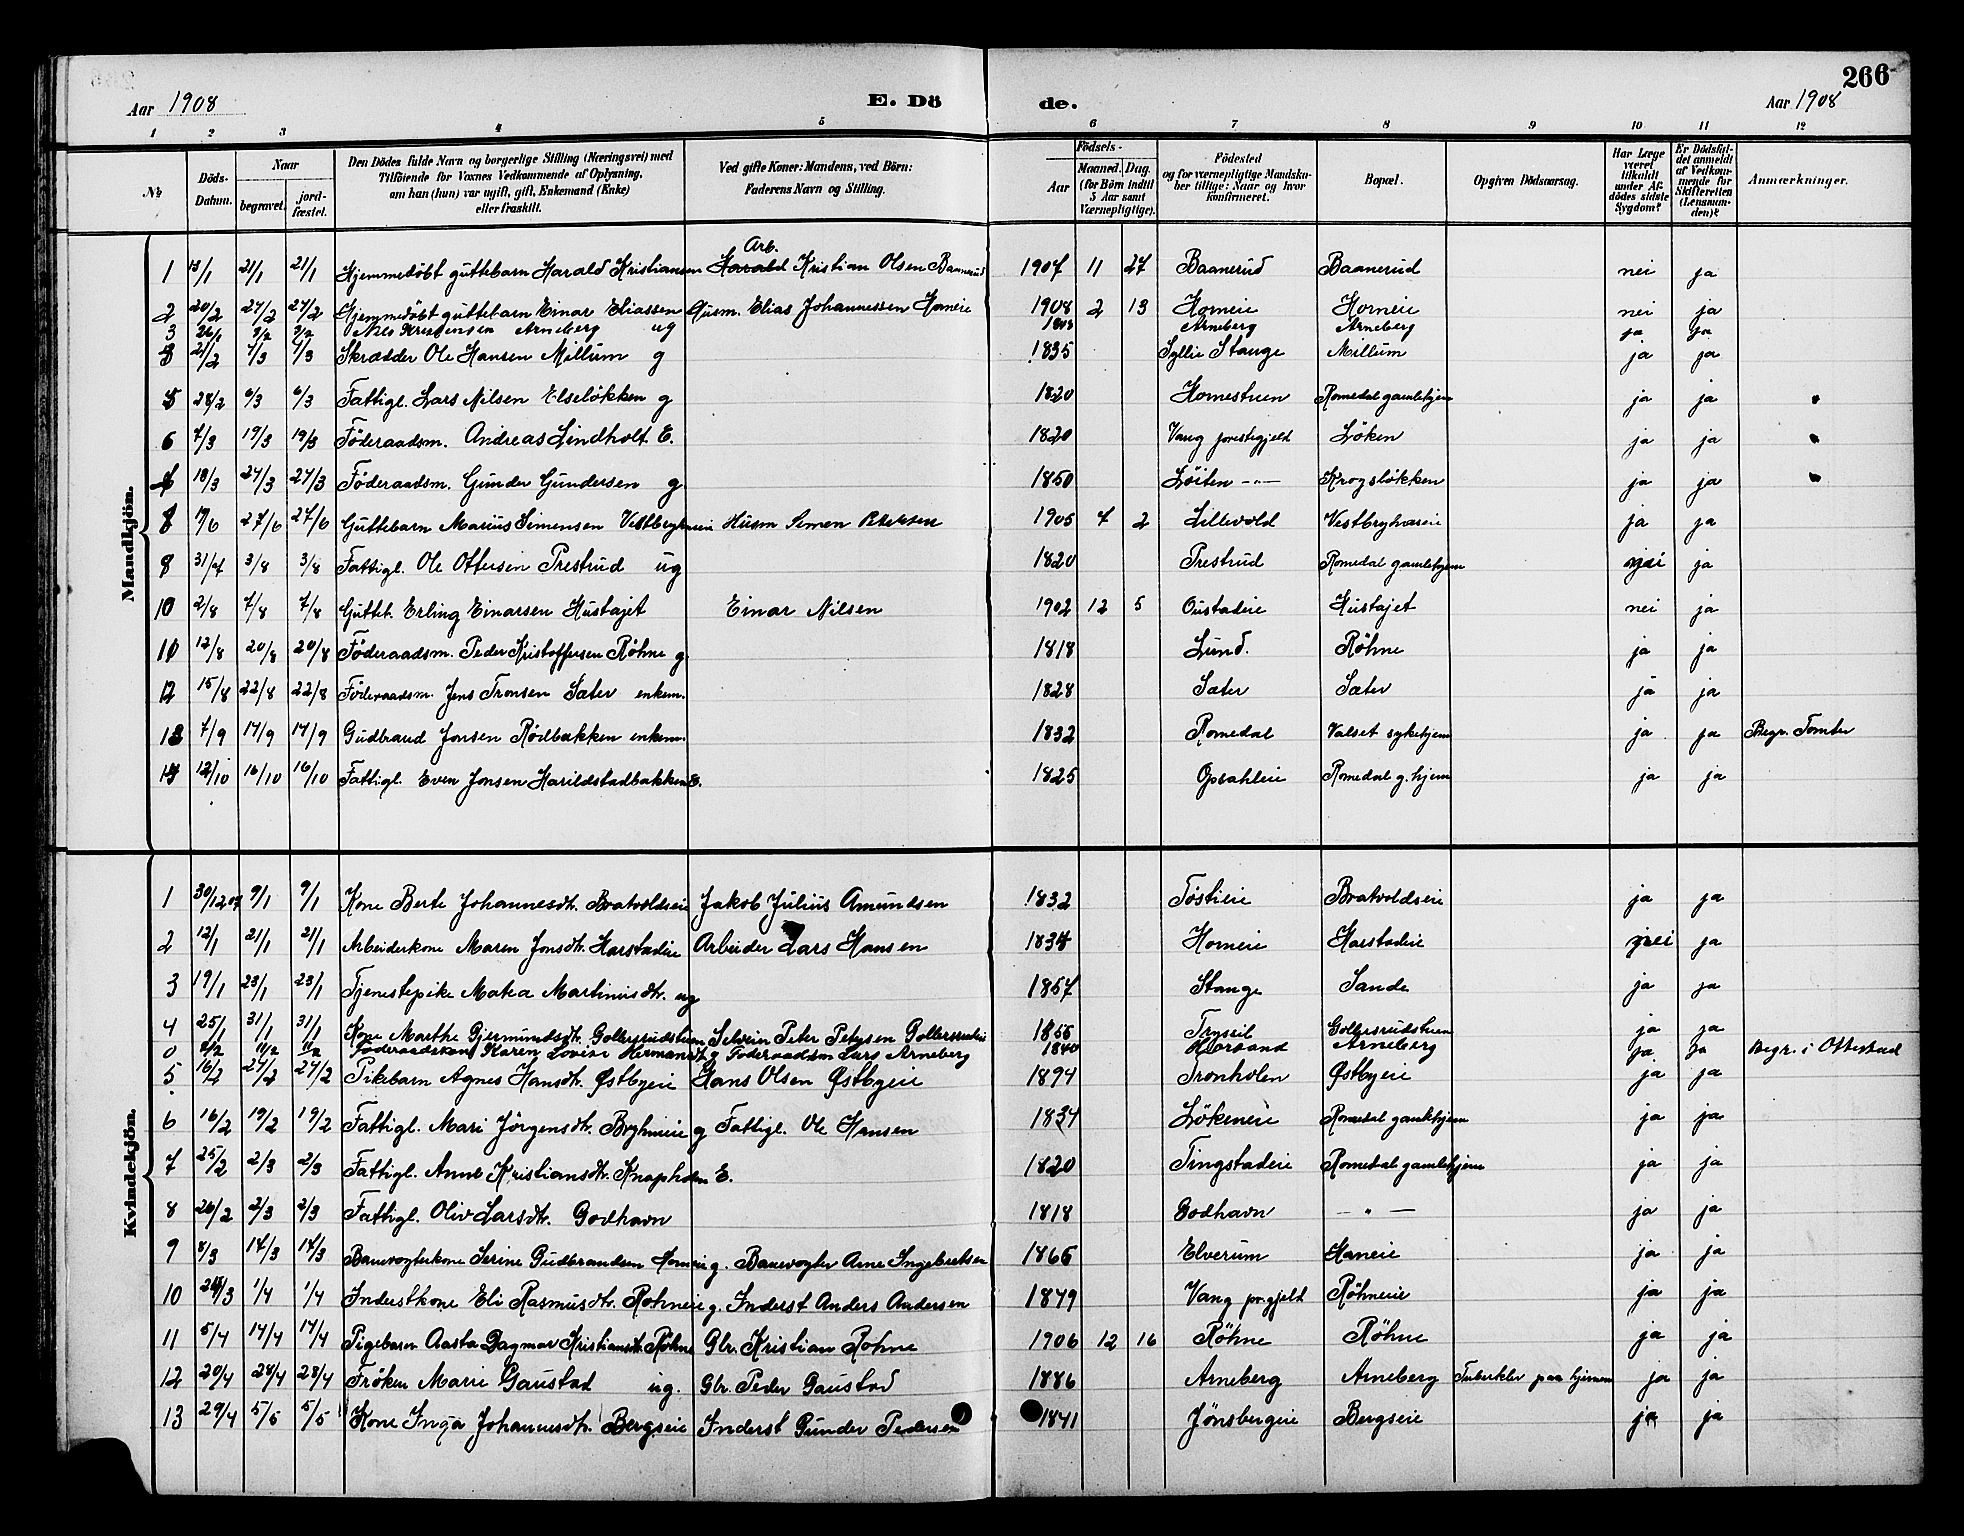 266
Aar 1908 E. Dö de. Aar 1908
1 2 3 4 5 6 7 8 9 10 11 12
№ Döds-Datum. Naar begravet. jord-fæstet. Den Dödes fulde Navn og borgerlige Stilling (Næringsvei) med Tilföiende for Voxnes Vedkommende af Oplysning, om han (hun) var ugift, gift, Enkemand (Enke) eller fraskilt. Ved gifte Koner: Mandens, ved Börn: Faderens Navn og Stilling. Födsels- Aar Maaned. Dag. (for Börn indtil 5 Aar samt Værnepligtige). Födested og for værnepligtige Mandskaber tillige: Naar og hvor konfirmeret. Bopæl. Opgiven Dödsaarsag. Har Læge været tilkaldt under Afdödes sidste Sygdom? Er Dödsfaldet anmeldt af Vedkommende for Skifteretten (Lensmanden)? Anmærkninger.
Mandkjön.
Arb.
1 13/1 21/1 21/1 Hjemmedöbt guttebarn Harald Kristiansen Harald Kristian Olsen Baanerud 1907 11 27 Baanerud Baanerud nei ja
2 20/2 27/2 27/2 Hjemmedöbt guttebarn Einar Eliassen Husm. Elias Johannessen Horneie 1908 2 13 Horneie Horneie nei ja
3 26/1 3/2 3/2 Nils Kristensen Arneberg ug Arneberg Arneberg ja ja
21/2 4/3 4/3 Skrædder Ole Hansen Millum g 1835 Syllie Stange Millum ja ja
5 28/2 6/3 6/3 Fattigl. Lars Nilsen Elselökken g 1820 Hornestuen Romedal gamlehjem ja ja
6 7/3 19/3 19/3 Föderaadsm. Andreas Lindholt E. 1820 Vang prestegjeld Löken ja ja
18/3 27/3 27/3 Föderaadsm. Gunder Gundersen g. 1850 Löiten -"- Krogslökken ja ja
8 19/6 27/6 27/6 Guttebarn Marius Simensen Vestbryhnseie Husm Simen Petersen 1905 7 2 Lillevold Vestbryhnseie ja ja
9 31/7 3/8 3/8 Fattigl. Ole Ottersen Prestrud ug 1820 Prestrud Romedal gamlehjem nei ja
10 2/8 7/8 7/8 Gutteb. Erling Einarsen Hustajet Einar Nilsen 1902 12 5 Oustadeie Hustajet nei ja
11 12/8 20/8 20/8 Föderaadsm. Peder Kristoffersen Röhne g. 1818 Lund. Röhne ja ja
12 15/8 22/8 22/8 Föderaadsm. Jens Tronsen Sæter enkem. 1828 Sæter Sæter ja ja
13 7/9 14/9 14/9 Gudbrand Jonsen Rödbakken enkem. 1832 Romedal Valset sykehjem ja ja Begr. Tomter
14 12/10 16/10 16/10 Fattigl. Even Jonsen Harildstadbakken E. 1825 Opsahleie Romedal g. hjem ja ja
Kvindekjön.
1 30/12 07 9/1 9/1 Kone Berte Johannesdtr. Bratvoldseie Jakob Julius Amundsen 1832 Töstieie Bratvoldseie ja ja
2 12/1 21/1 21/1 Arbeiderkone Maren Jonsdtr. Harstadeie Arbeider Lars Hansen 1834 Horneie Harstadeie nei ja
3 19/1 23/1 23/1 Tjenestepike Matea Martinusdtr. ug 1857 Stange Sande ja ja
4 25/1 31/1 31/1 Kone Marthe Gjermundsdtr. Gollersrudstuen Selveier Peter Petersen Gollersrudeie 1855 Trysil Gollersrudstuen ja ja
0 4/2 11/2 11/2 Föderaadskone Karen Lovise Hermansdtr. g Föderaadsm Lars Arneberg 1840 Arneberg ja ja Begr. i Ottestad
5 16/2 27/2 27/2 Pikebarn Agnes Hansdtr. Østbyeie Hans Olsen Østbyeie 1894 Tronholen Østbyeie ja ja
6 16/2 19/2 19/2 Fattigl. Mari Jörgensdtr. Bryhnieie g Fattigl. Ole Hansen 1834 Lökeneie Romedal gamlehjem ja ja
7 25/2 2/3 2/3 Fattigl. Anne Kristiansdtr. Knapholen E. 1820 Tingstadeie Romedal gamlehjem ja ja
8 26/2 2/3 2/3 Fattigl. Oliv Larsdtr. Godhavn 1818 Godhavn -"- ja ja
9 8/3 14/3 14/3 Banevogterkone Serine Gudbrandsen Horneie g. Banevogter Arne Ingebretsen 1865 Elverum Horneie ja ja
10 24/3 1/4 1/4 Inderstkone Eli Rasmusdtr. Röhneie g. Inderst Anders Andersen 1849 Vang pr.gjeld Röhneeie ja ja
11 5/4 14/4 14/4 Pigebarn Aasta Dagmar Kristiansdtr. Röhne Gbr. Kristian Rohne 1906 12 16 Röhne Röhne ja ja
12 20/4 28/4 28/4 Fröken Marie Gaustad ug. Gbr. Peder Gaustad 1886 Arneberg Arneberg Tuberkler paa hjernen ja ja
13 29/4 5/5 5/5 Kone Inga Johannesdtr. Bergseie Inderst Gunder Pedersen 1841 Jönsbergeie Bergseie ja ja